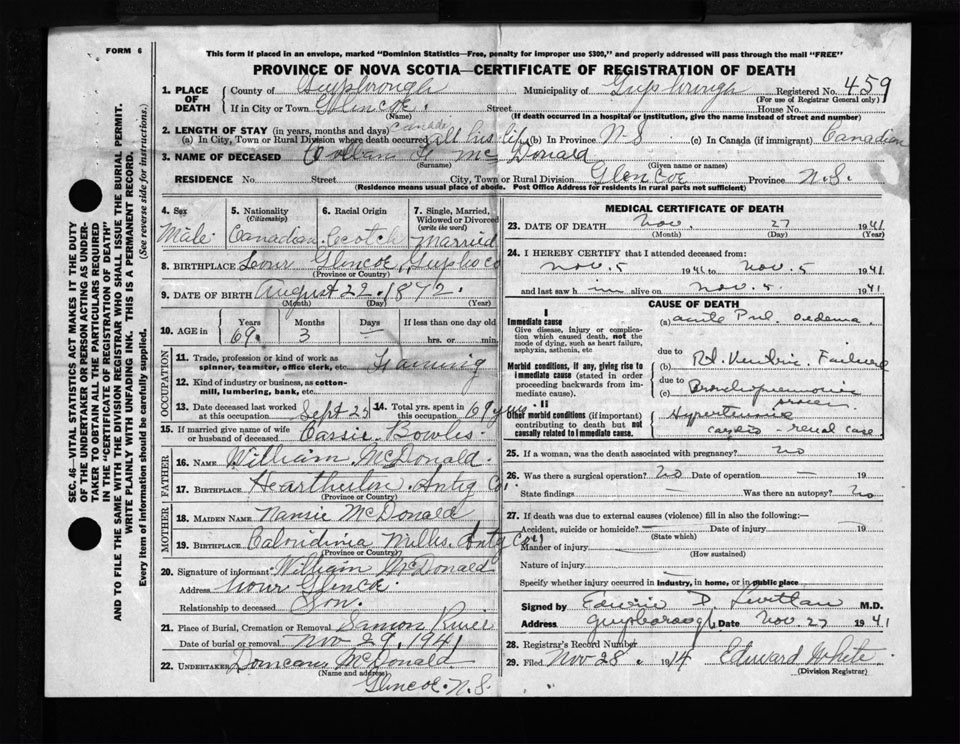 FORM 6
This form if placed in an envelope, marked "Dominion Statistics—Free, penalty for improper use $300," and properly addressed will pass through the mail "FREE"
PROVINCE OF NOVA SCOTIA—CERTIFICATE OF REGISTRATION OF DEATH
SEC. 46—VITAL STATISTICS ACT MAKES IT THE DUTY
OF THE UNDERTAKER OR PERSON ACTING AS UNDER-
TAKER TO OBTAIN ALL THE PARTICULARS REQUIRED
IN THE "CERTIFICATE OF REGISTRATION OF DEATH"
AND TO FILE THE SAME WITH THE DIVISION REGISTRAR WHO SHALL ISSUE THE BURIAL PERMIT.
WRITE PLAINLY WITH UNFADING INK. THIS IS A PERMANENT RECORD.
Every item of information should be carefully supplied. (See reverse side for instructions.)
1. PLACE OF DEATH County of Guysborough Municipality of Guysborough Registered No. 459
(For use of Registrar General only)
If in City or Town Glencoe. Street House No.
(Name) (If death occurred in a hospital or institution, give the name instead of street and number)
2. LENGTH OF STAY (in years, months and days) Canada
(a) In City, Town or Rural Division where death occurred all his life (b) In Province N-S (c) In Canada (if immigrant) Canadian
3. NAME OF DECEASED Mc Donald
(Surname) (Given name or names)
RESIDENCE No. Street City, Town or Rural Division Glencoe Province N.S.
(Residence means usual place of abode. Post Office Address for residents in rural parts not sufficient)
4. Sex Male
5. Nationality (Citizenship) Canadian
6. Racial Origin Scotch
7. Single, Married, Widowed or Divorced (write the word) married
8. BIRTHPLACE Glencoe, Guysbo co
(Province or Country)
9. DATE OF BIRTH August 22. 1872.
(Month) (Day) (Year)
10. AGE in Years 69. Months 3 Days — If less than one day hrs. or min.
OCCUPATION
11. Trade, profession or kind of work as spinner, teamster, office clerk, etc. Farming
12. Kind of industry or business, as cotton-mill, lumbering, bank, etc.
13. Date deceased last worked at this occupation Sept 25
14. Total yrs. spent in this occupation 69 yrs.
15. If married give name of wife or husband of deceased Cassie Bowles.
FATHER
16. NAME William McDonald.
17. BIRTHPLACE Antig Co.
(Province or Country)
MOTHER
18. MAIDEN NAME Nancie McDonald
19. BIRTHPLACE Mills Antg Co
(Province or Country)
20. Signature of informant William McDonald
Address Glencoe
Relationship to deceased Son.
21. Place of Burial, Cremation or Removal Samon River
Date of burial or removal Nov 29, 1941
22. UNDERTAKER McDonald
(Name and address)
Glencoe. N.S.
MEDICAL CERTIFICATE OF DEATH
23. DATE OF DEATH Nov. 27 1941
(Month) (Day) (Year)
24. I HEREBY CERTIFY that I attended deceased from:
Nov. 5 1941 to Nov. 5 1941
and last saw h im alive on Nov. 5. 1941
CAUSE OF DEATH
I
Immediate cause
Give disease, injury or complication which caused death, not the mode of dying, such as heart failure, asphyxia, asthenia, etc
(a) acute Pul. oedema.
due to
Morbid conditions, if any, giving rise to immediate cause (stated in order proceeding backwards from immediate cause).
(b) Failure
due to
(c) Bronchopneumonia
II
Other morbid conditions (if important) contributing to death but not causally related to immediate cause.
Hypertensive
cardio - renal case
25. If a woman, was the death associated with pregnancy? no
26. Was there a surgical operation? No Date of operation — 19
State findings — Was there an autopsy? No
27. If death was due to external causes (violence) fill in also the following:—
Accident, suicide or homicide? — Date of injury 19
(State which)
Manner of injury
(How sustained)
Nature of injury
Specify whether injury occurred in industry, in home, or in public place
Signed by D. M.D.
Address Guysborough Date Nov. 27 1941
28. Registrar's Record Number
29. Filed Nov 28. 1914 Edward White
(Division Registrar)